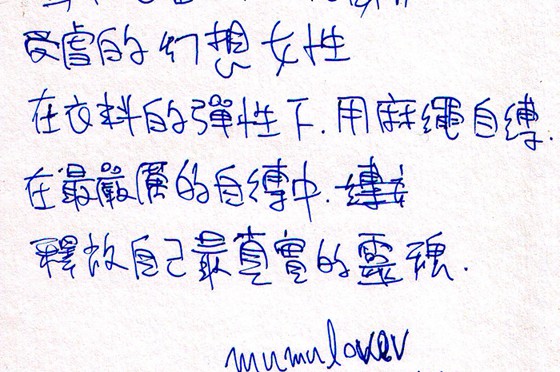 受虐的幻想女性
在衣料的彈性下.用麻繩自縛.
在最嚴厲的自縛中.
釋放自己最真實的靈魂.
mumulover